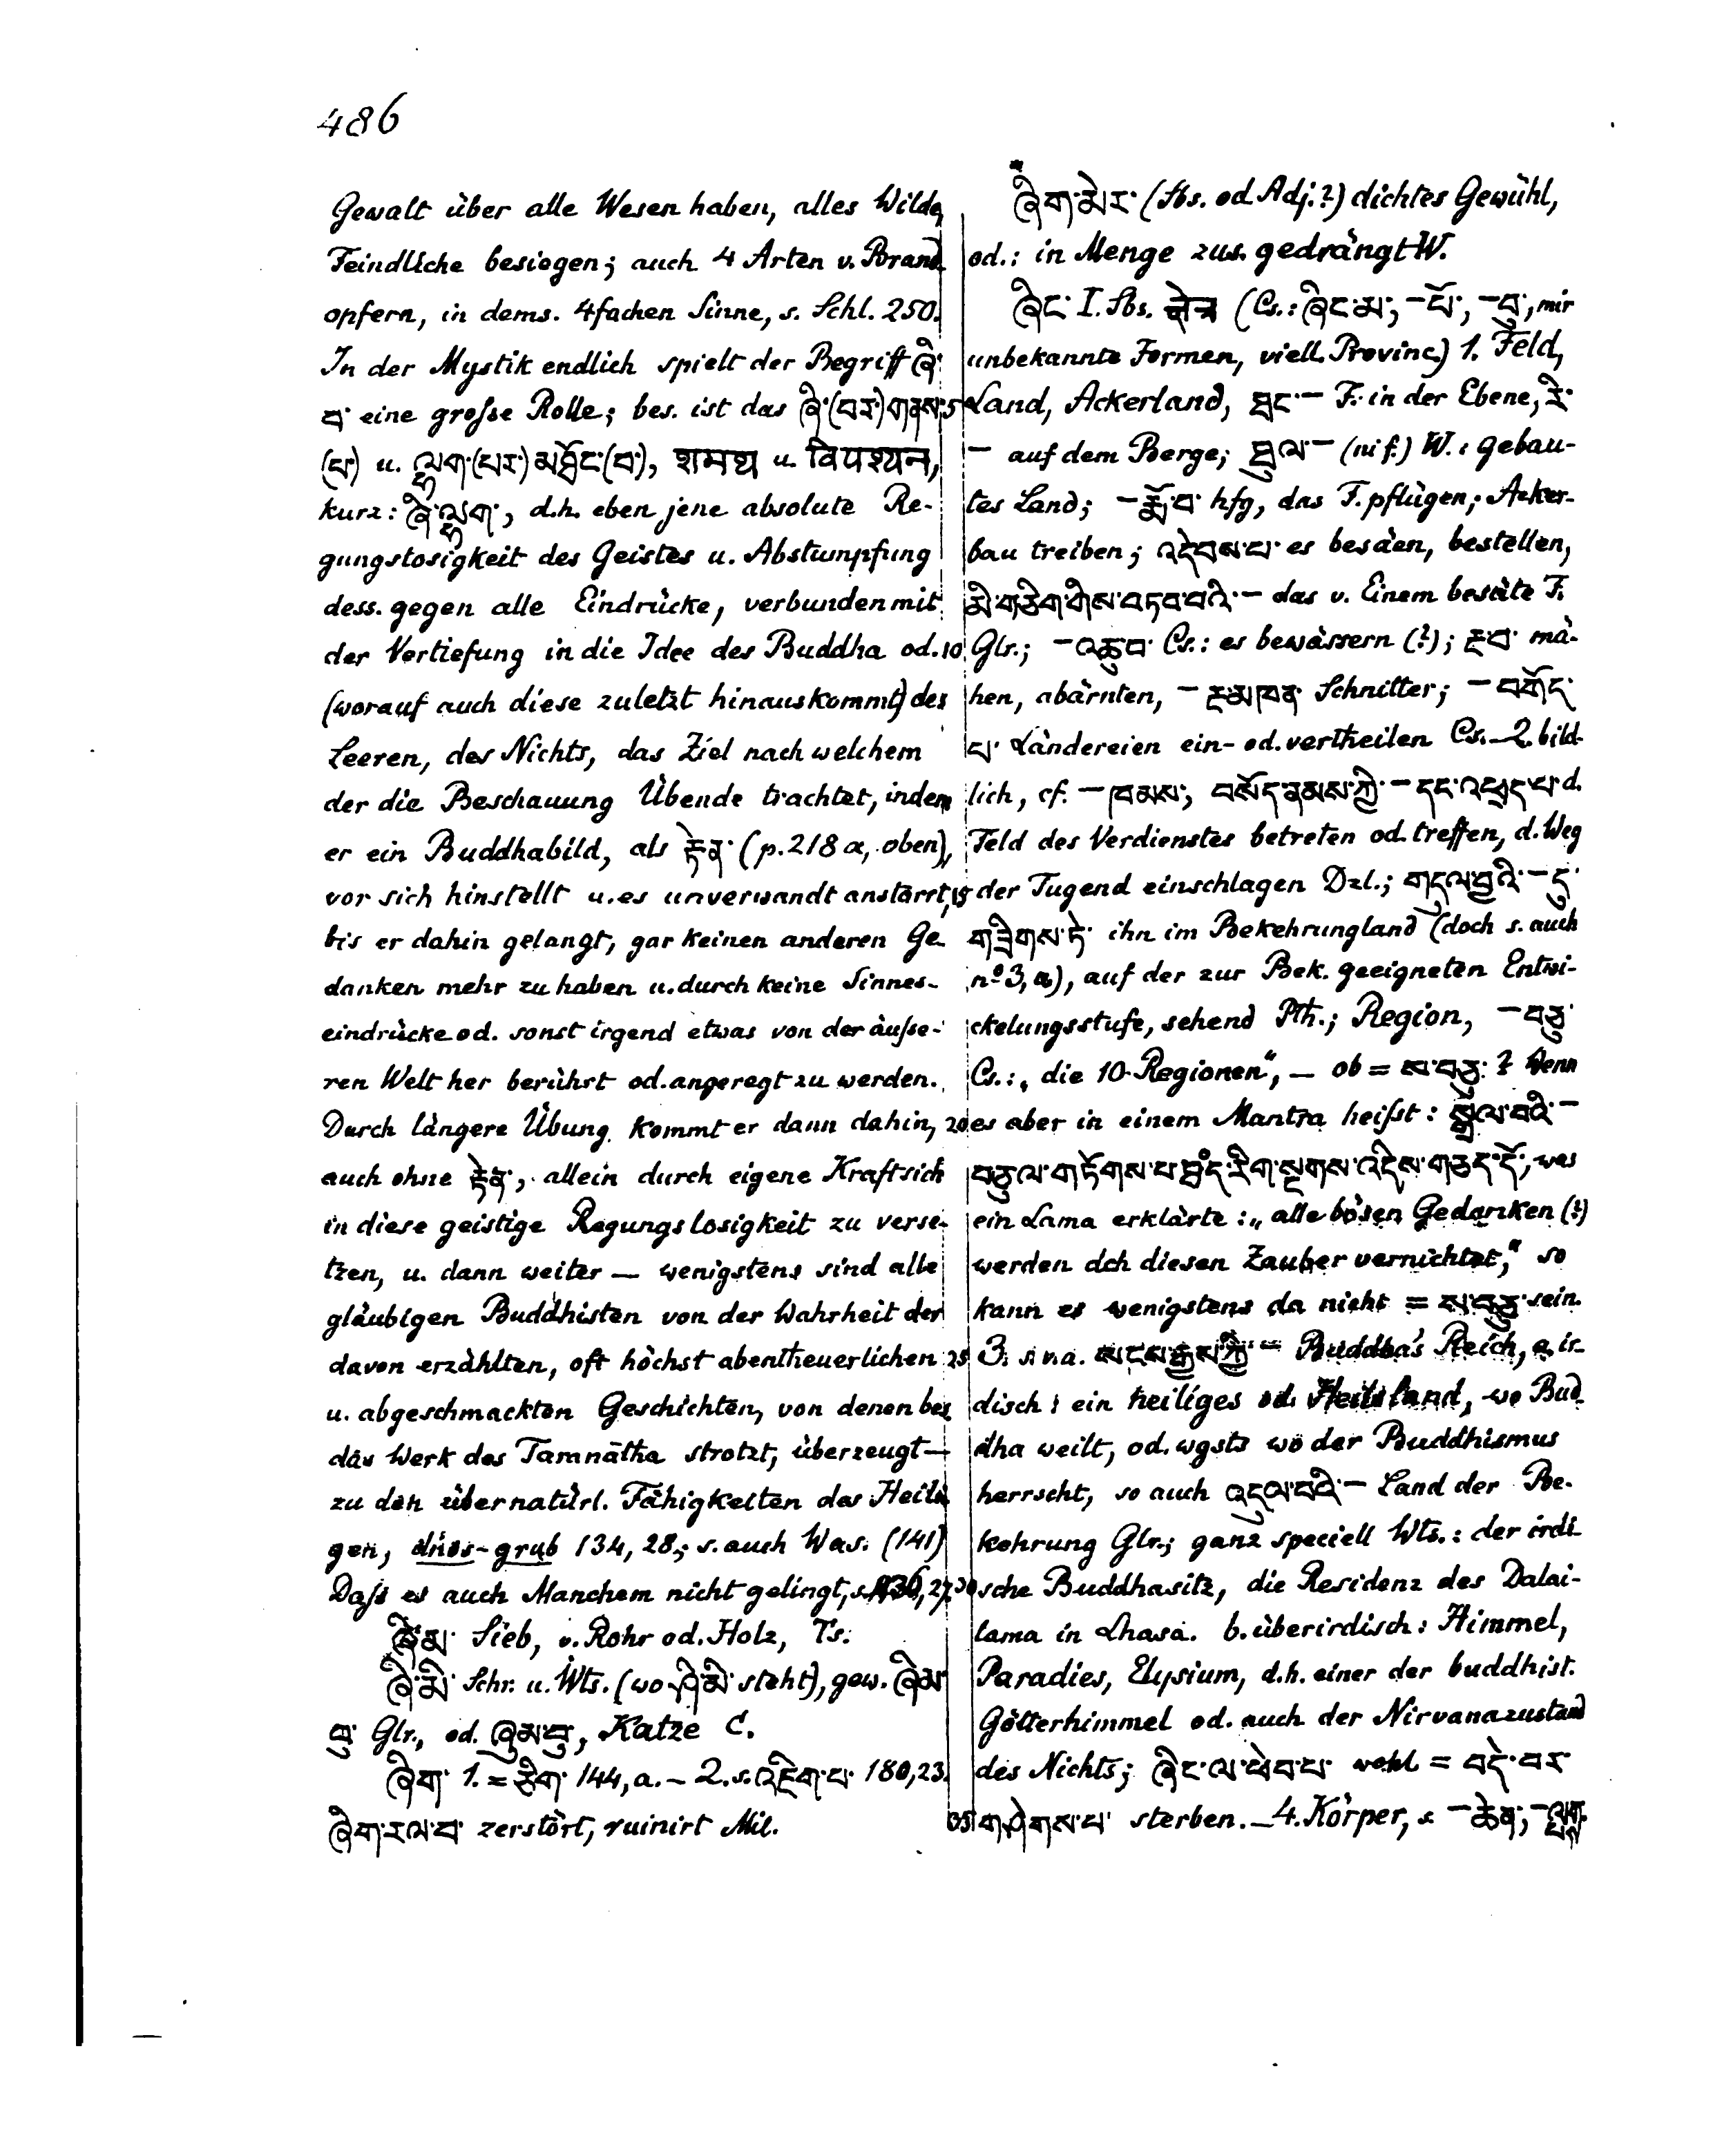 486
Gewalt über alle Wesen haben, alles Wilde,
Feindliche besiegen; auch 4 Arten v. Brand
opfern, in dems. 4fachen Sinne, s. Schl. 250.
In der Mystik endlich spielt der Begriff ཞི་
བ་ eine große Rolle; bes. ist das ཞི་(བར་)གནས་ 5
(པ་) u. ལྷག་(པར་)མཐོང་(བ་), शमथ u. विपश्यन,
kurz: ཞི་ལྷག་, d.h. eben jene absolute Re-
gungslosigkeit des Geistes u. Abstumpfung
dess. gegen alle Eindrücke, verbunden mit
der Vertiefung in die Idee des Buddha od. 10
(worauf auch diese zuletzt hinauskommt) des
Leeren, des Nichts, das Ziel nach welchem
der die Beschauung Übende trachtet, indem
er ein Buddhabild, als རྟེན་ (p. 218 a, oben),
vor sich hinstellt u. es unverwandt anstarrt, 15
bis er dahin gelangt, gar keinen anderen Ge
danken mehr zu haben u. durch keine Sinnes-
eindrücke od. sonst irgend etwas von der äuße-
ren Welt her berührt od. angeregt zu werden.
Durch längere Übung kommt er dann dahin, 20
auch ohne རྟེན་, allein durch eigene Kraft sich
in diese geistige Regungslosigkeit zu verse-
tzen, u. dann weiter — wenigstens sind alle
gläubigen Buddhisten von der Wahrheit der
davon erzählten, oft höchst abentheuerlichen 25
u. abgeschmackten Geschichten, von denen bes
das Werk des Taranātha strotzt, überzeugt —
zu den übernatürl. Fähigkeiten des Heili
gen, dños-grub 134, 28.; s. auch Was. (141)
Daß es auch Manchem nicht gelingt, s. 136, 27. 30
ཞི་མ་ Sieb, v. Rohr od. Holz, Ts.
ཞི་མི་ Schr. u. Wts. (wo ཤི་མི་ steht), gew. ཞིམ་
བུ་ Glr., od. ཞུམ་བུ་, Katze C.
ཞིག་ 1. = ཅིག་ 144, a. – 2. s. འཇིག་པ་ 180, 23.
ཞིག་རལ་བ་ zerstört, ruinirt Mil. 35
ཞིག་མེར་ (Sbs. od Adj.?) dichtes Gewühl,
od.: in Menge zus. gedrängt W.
ཞིང་ I. Sbs. क्षेत्र (Cs.: ཞིང་མ་, –པོ་, –བུ་, mir
unbekannte Formen, viell. Provinc.) 1. Feld,
Land, Ackerland, ཐང་ – F. in der Ebene, རི་
– auf dem Berge; ཐུལ་ – (ni f.) W.: gebau-
tes Land; – རྨོ་བ་ hfg, das F. pflügen; Acker-
bau treiben; འདེབས་པ་ es besäen, bestellen,
མི་གཅིག་གིས་བཏབ་བའི་ – das v. Einem besäte F.
Glr.; – འཆུ་བ་ Cs.: es bewässern (?); རྔ་བ་ mä-
hen, abärnten, – རྔ་མཁན་ Schnitter; – བགོད་
པ་ Ländereien ein- od. vertheilen Cs. – 2. bild-
lich, cf. – ཁམས་, བསོད་ནམས་ཀྱི་ – དང་འཕྲད་པ་ d.
Feld des Verdienstes betreten od. treffen, d. Weg
der Tugend einschlagen Dzl.; གདུལ་བྱའི་ – དུ་
གཟིགས་ཏེ་ ihn im Bekehrungland (doch s. auch
nº 3, a), auf der zur Bek. geeigneten Entwi-
ckelungsstufe, sehend Pth.; Region, – བཅུ་
Cs.: „die 10 Regionen“, – ob = ས་བཅུ་? Wenn
es aber in einem Mantra heißt: སྒྲོལ་བའི་ –
བཅུ་ལ་གཏོགས་པ་ རིག་སྔགས་འདིས་གཅད་དོ་, was
ein Lama erklärte: „alle bösen Gedanken (?)
werden dch diesen Zauber vernichtet,“ so
kann es wenigstens da nicht = ས་བཅུ་ sein.
3. སངས་རྒྱས་ཀྱི་ – Buddha's Reich, a, ir-
disch: ein heiliges od. Heilsland, wo Bud-
dha weilt, od. wgsts wo der Buddhismus
herrscht, so auch འདུལ་བའི་ – Land der Be-
kehrung Glr.; ganz speciell Wts.: der irdi-
sche Buddhasitz, die Residenz des Dalai-
lama in Lhasa. b. überirdisch: Himmel,
Paradies, Elysium, d.h. einer der buddhist.
Götterhimmel od. auch der Nirvanazustand
des Nichts; ཞིང་ལ་ཕེབ་པ་ wohl = བདེ་བར་
གཤེགས་པ་ sterben. – 4. Körper, s. – ཆེན་,